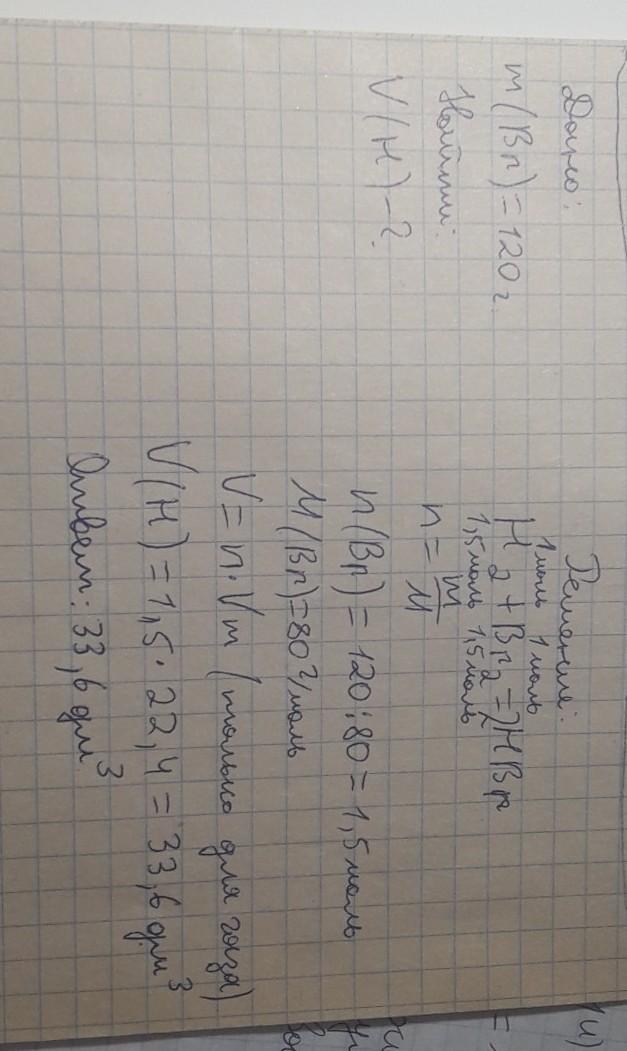 Дано:
m(Br)=120г
Найти:
V(H)-?
Решение:
1моль 1моль
H2+Br2=2HBr
1,5моль 1,5моль
n=m/M
n(Br)=120:80=1,5моль
M(Br)=80г/моль
V=n·Vm (только для газа)
V(H)=1,5·22,4=33,6дм³
Ответ:33,6дм³